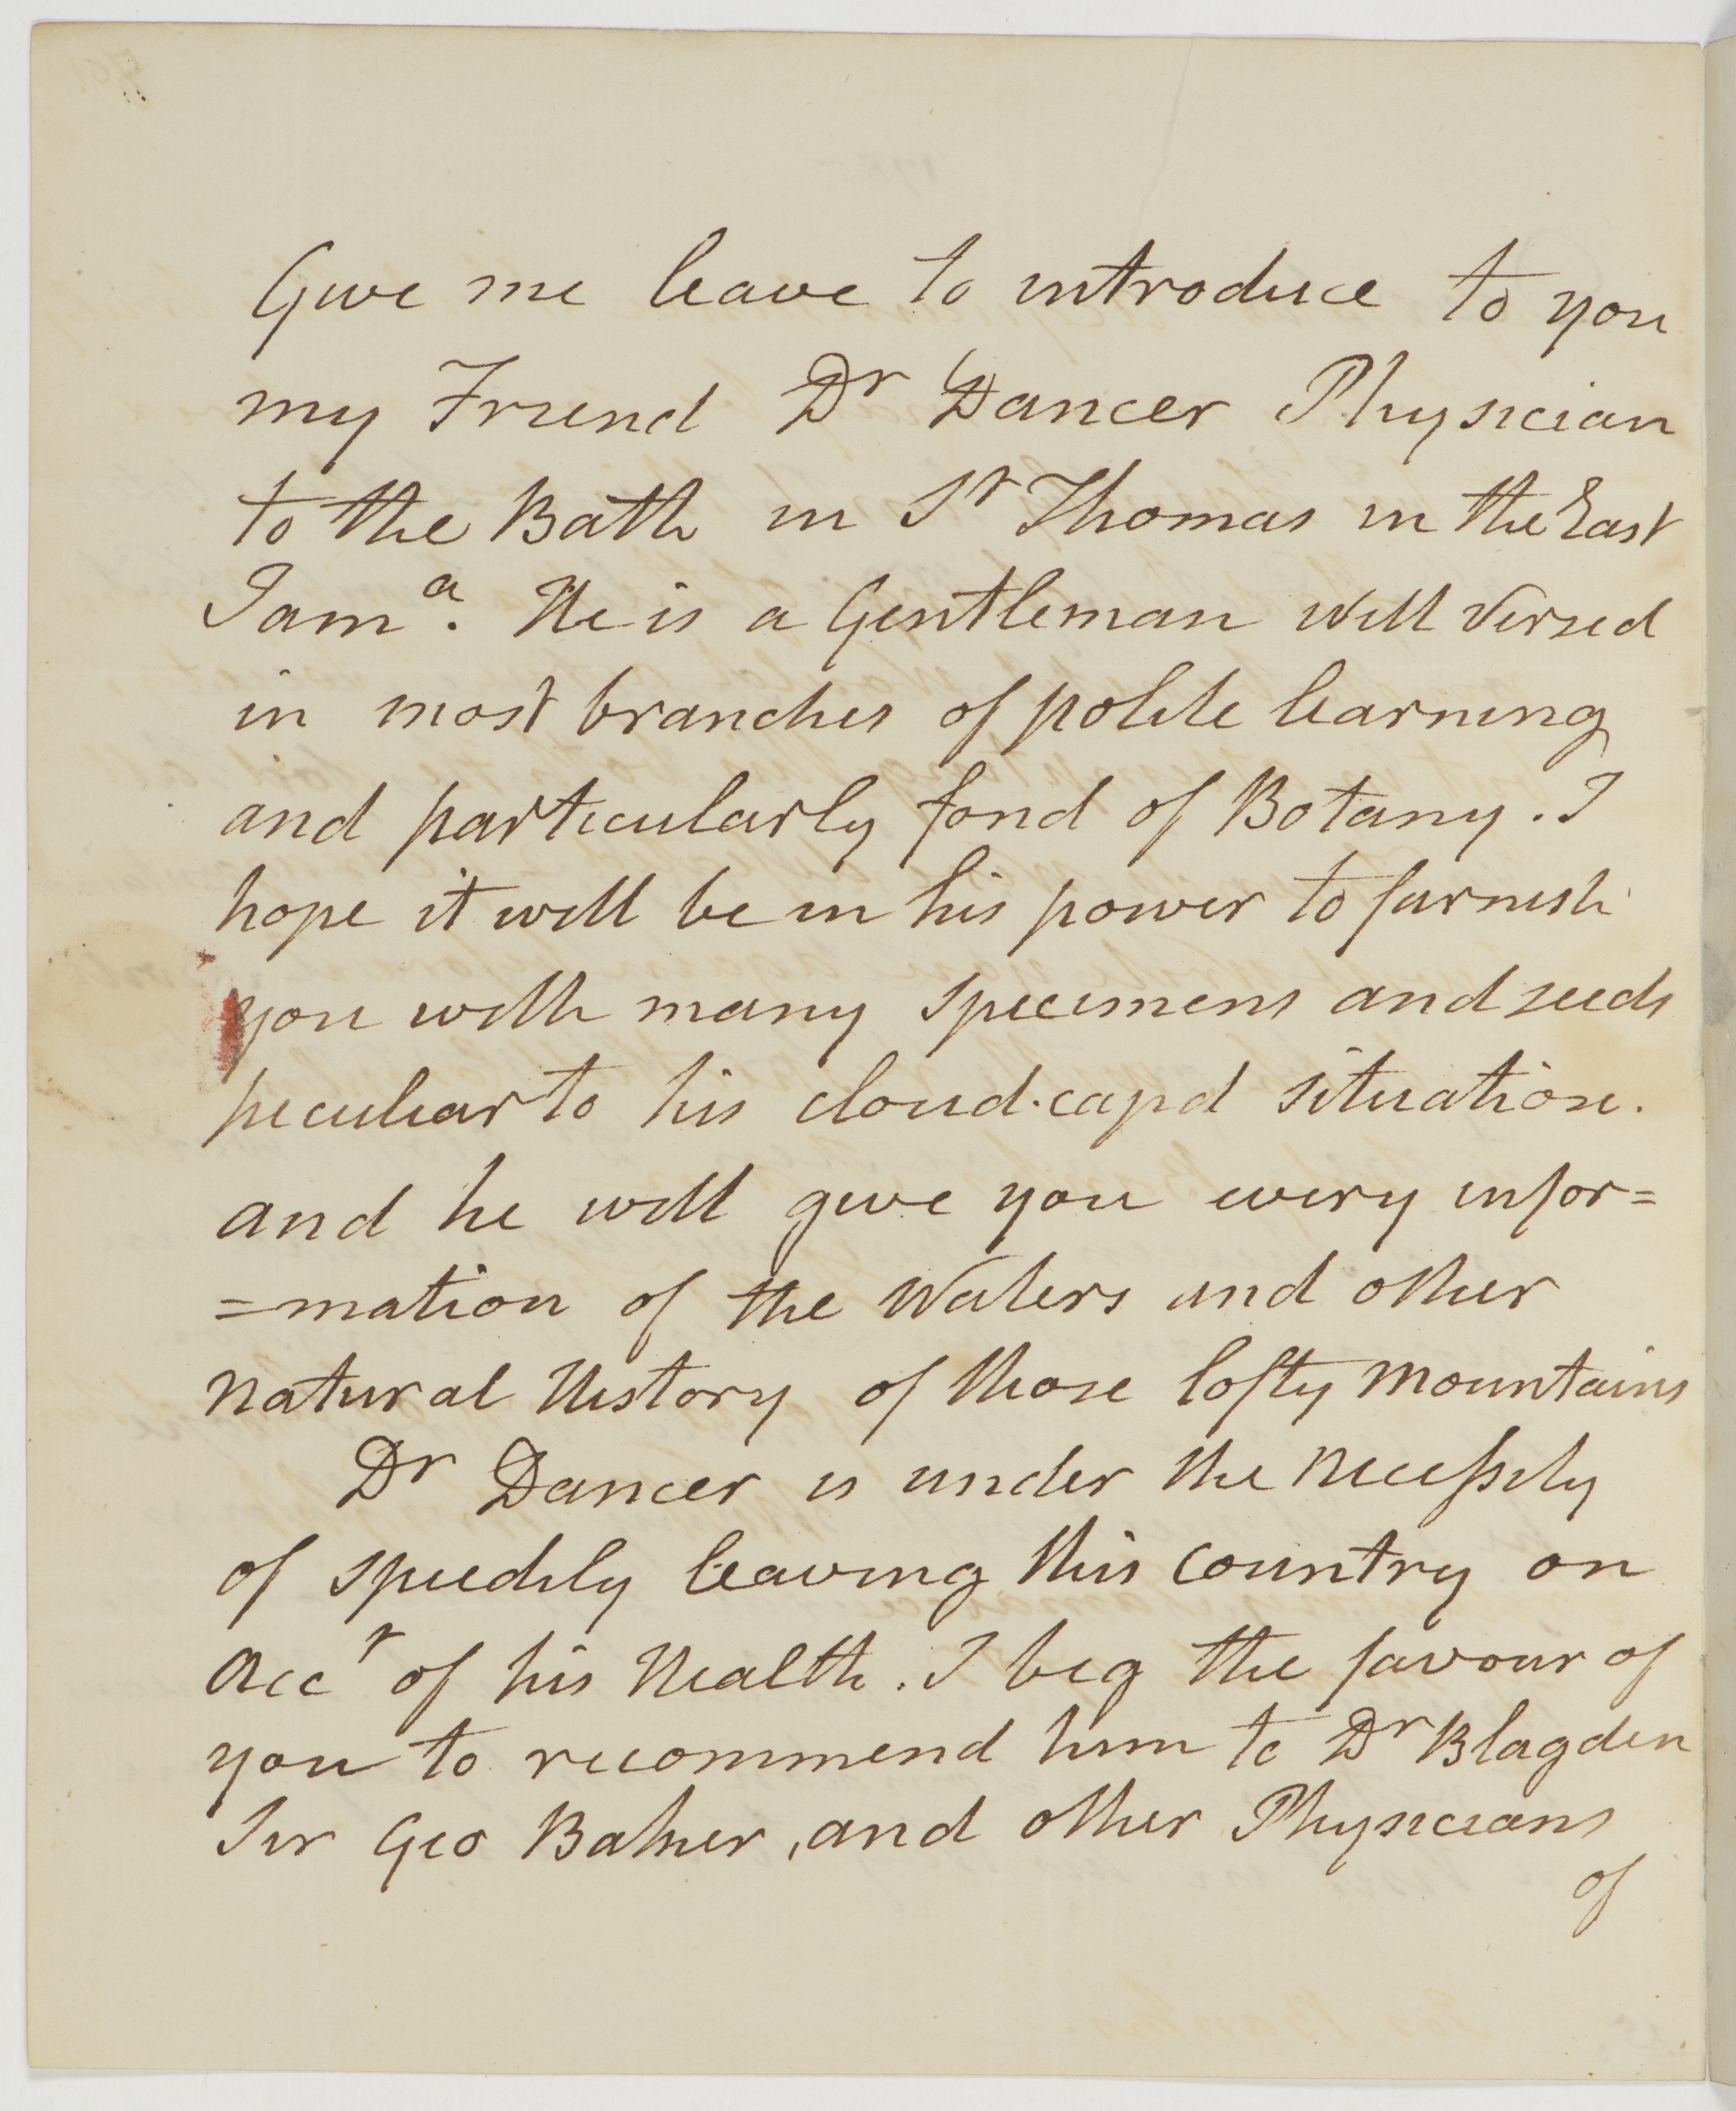 Give me leave to introduce to you
my Friend Dr Dancer Physician
to the Bath in St Thomas in the East
Jama. He is a Gentleman well versed
in most branches of polite learning
and particularly fond of Botany. I
hope it will be in his power to furnish
you with many specimens and seeds
peculiar to his cloud-capd situation.
and he will give you every infor=
=mation of the Waters and other
Natural History of those lofty Mountains
Dr Dancer is under the Necessity
of speedily leaving this Country on
Acct of his Health. I beg the favour of
you to recommend him to Dr Blagden
Sir Geo Baker, and other Physicians
of